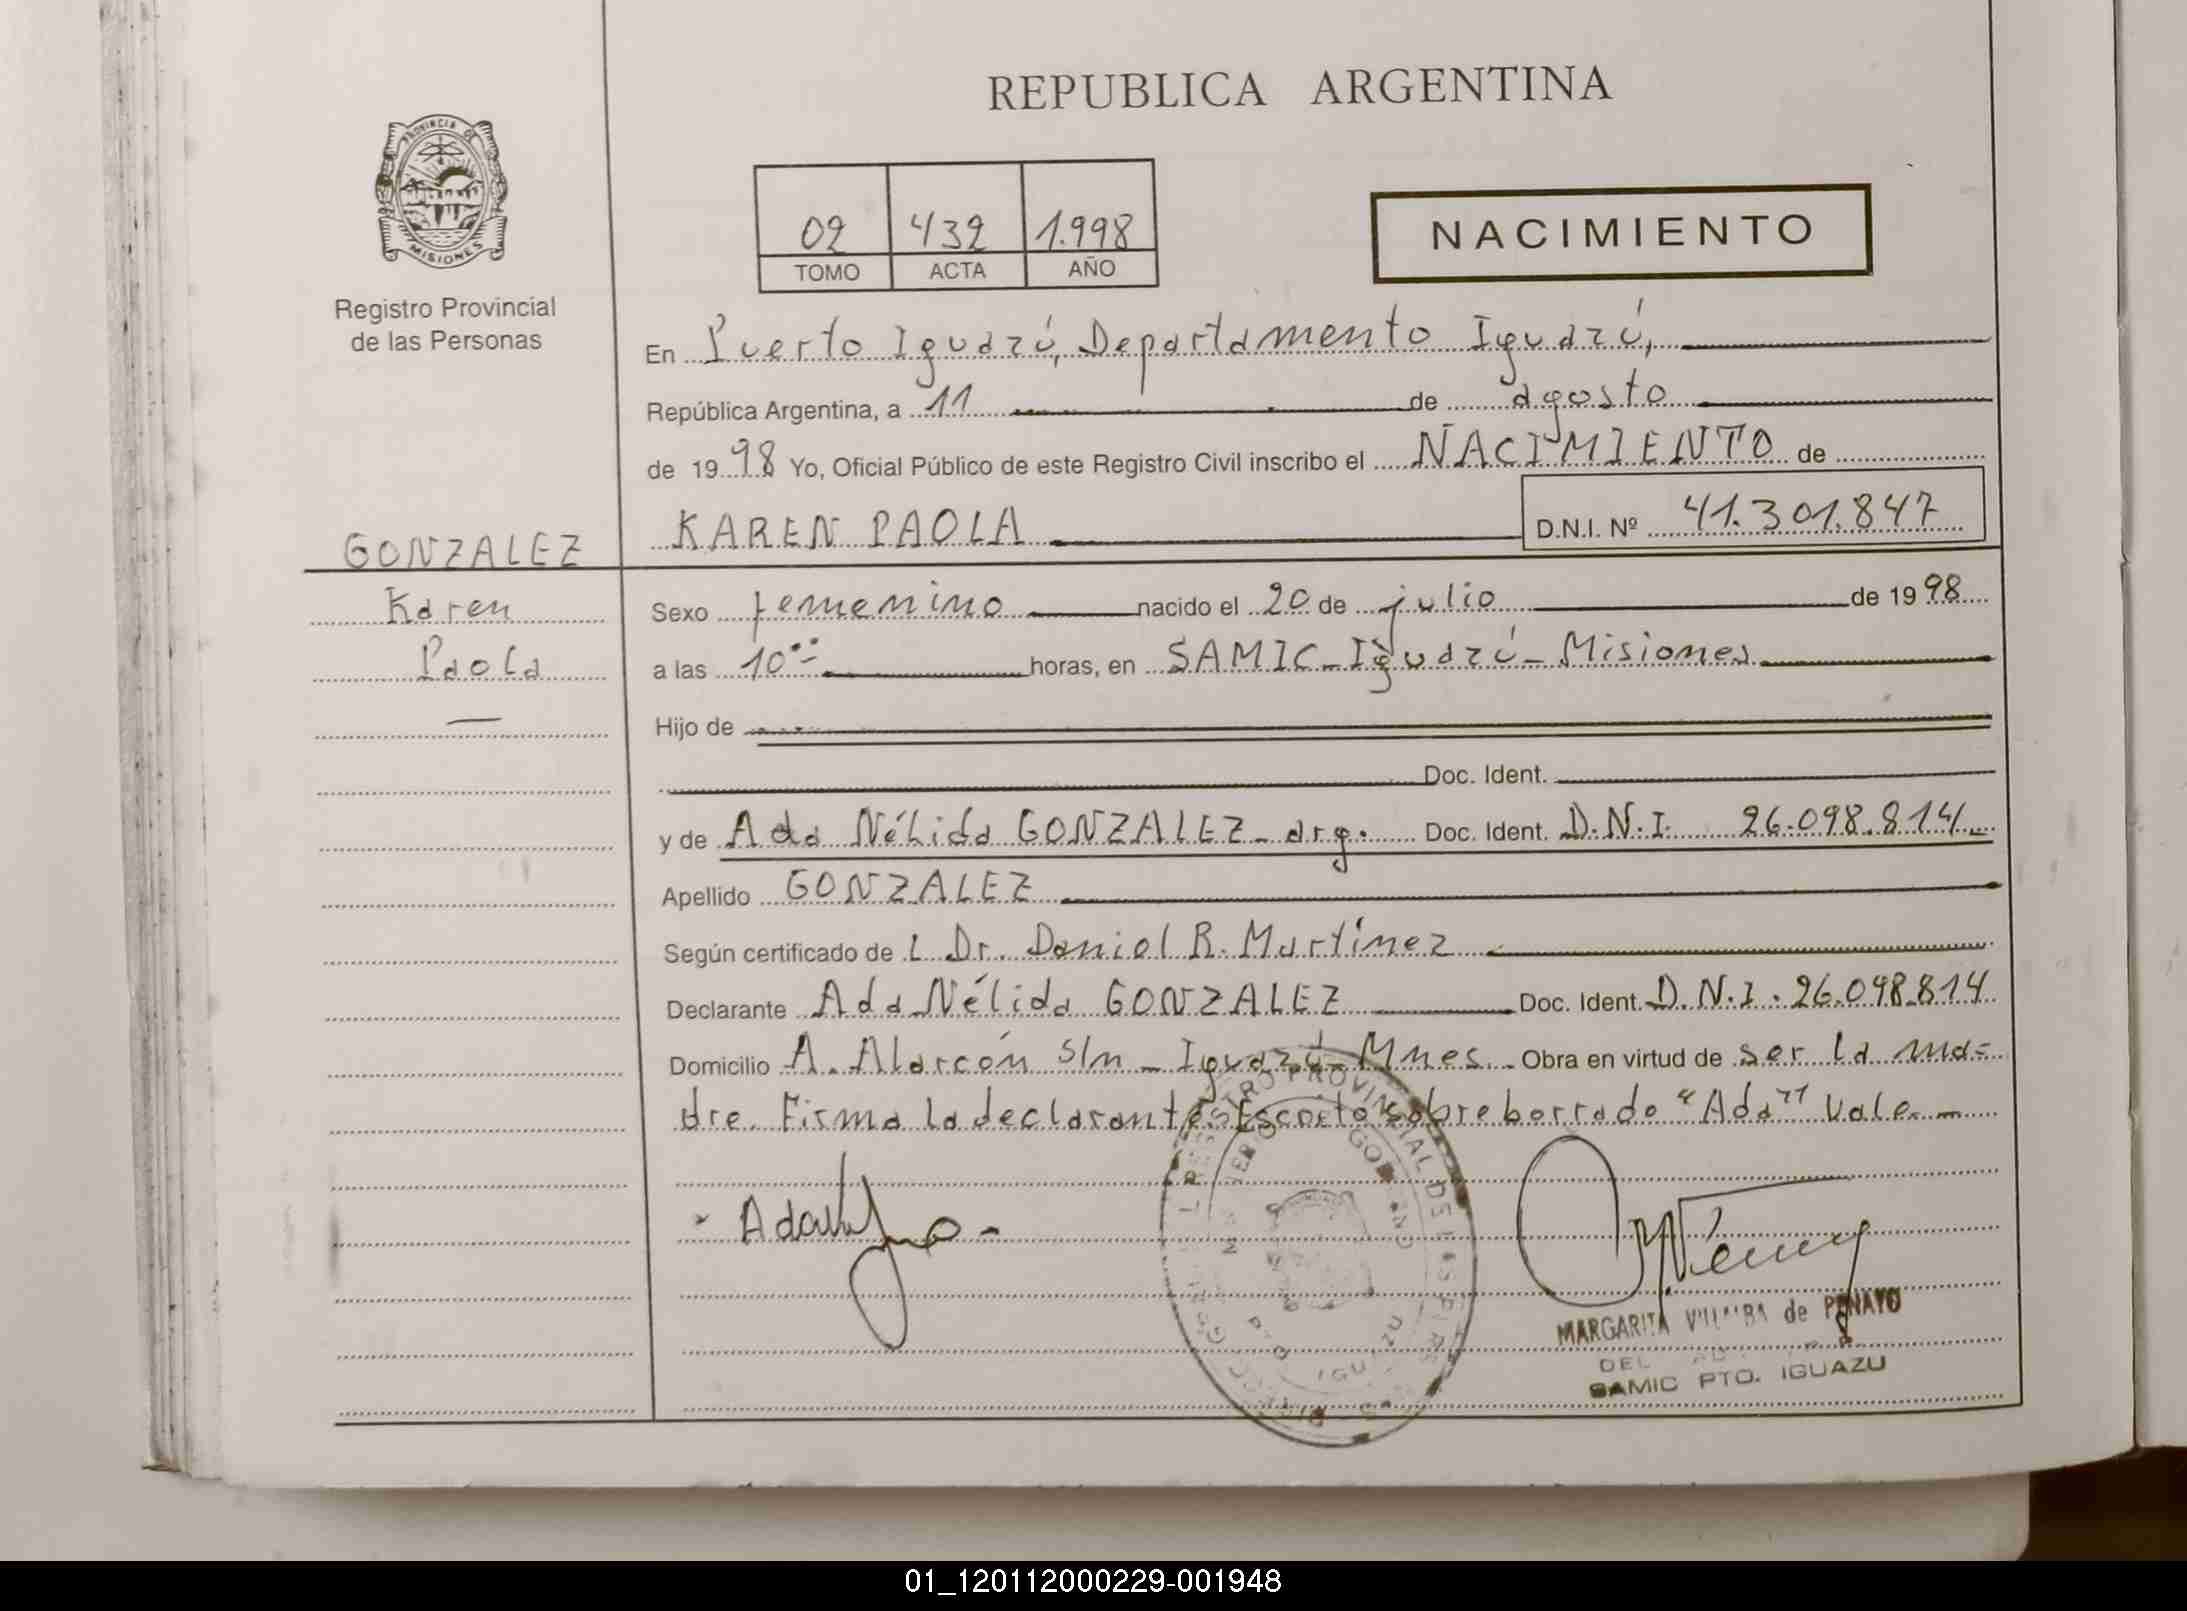 REPUBLICA ARGENTINA
PROVINCIA DE
MISIONES
Registro Provincial
de las Personas
02 432 1.998
TOMO ACTA AÑO
NACIMIENTO
En Puerto Iguazú, Departamento Iguazú,
República Argentina, a 11 de agosto
de 1998 Yo, Oficial Público de este Registro Civil inscribo el NACIMIENTO de
KAREN PAOLA D.N.I. Nº 41.301.847
GONZALEZ
Karen
Paola
Sexo femenino nacido el 20 de julio de 1998
a las 10 horas, en SAMIC-Iguazú-Misiones
Hijo de
Doc. Ident.
y de Ada Nélida GONZALEZ-arg. Doc. Ident. D.N.I. 26.098.814
Apellido GONZALEZ
Según certificado de L Dr. Daniel R. Martínez
Declarante Ada Nélida GONZALEZ Doc. Ident. D.N.I. 26.098.814
Domicilio A. Alarcón s/n - Iguazú - Mnes. Obra en virtud de ser la ma=
dre. Firma la declarante. Escrito sobre borrado "Ada" vale.-
REGISTRO PROVINCIAL DE LAS
PTO IGUAZU
MARGARITA VILLALBA de PENAYO
SAMIC PTO. IGUAZU
01_120112000229-001948